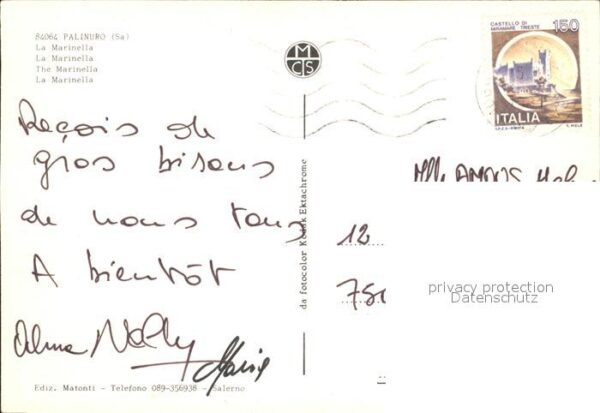 84064 PALINURO (Sa)
La Marinella
La Marinella
The Marinella
La Marinella
MCS
CASTELLO DI
MIRAMARE TRIESTE
150
ITALIA
Reçois de
gros bisous
de nous tous
A bientôt
Nelly
Marie
da fotocolor Kodak Ektachrome
Mlle
12
75
privacy protection
Datenschutz
Ediz. Matonti - Telefono 089-356938 - Salerno